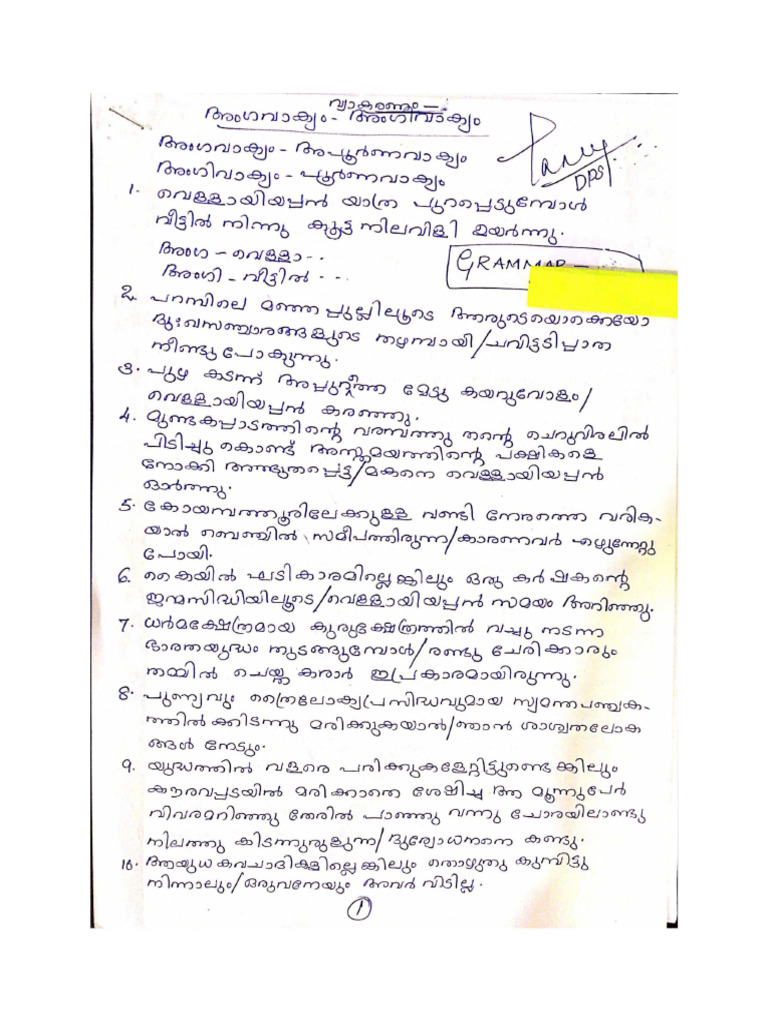 വ്യാകരണം –
അംഗവാക്യം - അംഗിവാക്യം
അംഗവാക്യം - അപൂർണവാക്യം
അംഗിവാക്യം - പൂർണവാക്യം
DPS
1. വെള്ളായിയപ്പൻ യാത്ര പുറപ്പെടുമ്പോൾ
വീട്ടിൽ നിന്നു കൂട്ട നിലവിളി ഉയർന്നു.
അംഗ - വെള്ളാ...
അംഗി - വീട്ടിൽ ...
GRAMMAR –
2. പറമ്പിലെ മഞ്ഞപ്പുല്ലിലൂടെ ആരുടെയൊക്കെയോ
ദുഃഖസഞ്ചാരങ്ങളുടെ തഴമ്പായി/ചവിട്ടടിപ്പാത
നീണ്ടുപോകുന്നു.
3. പുഴ കടന്ന് അപ്പുറത്തെ മേട്ടു കയറുവോളം/
വെള്ളായിയപ്പൻ കരഞ്ഞു.
4. മുണ്ടകപ്പാടത്തിന്റെ വരമ്പത്തു തന്റെ ചെറുവിരലിൽ
പിടിച്ചു കൊണ്ട് അസ്തമയത്തിന്റെ പക്ഷികളെ
നോക്കി അത്ഭുതപ്പെട്ട/മകനെ വെള്ളായിയപ്പൻ
ഓർത്തു.
5. കോയമ്പത്തൂരിലേക്കുള്ള വണ്ടി നേരത്തെ വരിക-
യാൽ ബെഞ്ചിൽ സമീപത്തിരുന്ന/കാരണവർ എഴുന്നേറ്റു
പോയി.
6. കൈയിൽ ഘടികാരമില്ലെങ്കിലും ഒരു കർഷകന്റെ
ജന്മസിദ്ധിയിലൂടെ/വെള്ളായിയപ്പൻ സമയം അറിഞ്ഞു.
7. ധർമക്ഷേത്രമായ കുരുക്ഷേത്രത്തിൽ വച്ചു നടന്ന
ഭാരതയുദ്ധം തുടങ്ങുമ്പോൾ/രണ്ടു ചേരിക്കാരും
തമ്മിൽ ചെയ്ത കരാർ ഇപ്രകാരമായിരുന്നു.
8. പുണ്യവും ത്രൈലോക്യപ്രസിദ്ധവുമായ സ്യമന്തപഞ്ചക-
ത്തിൽക്കിടന്നു മരിക്കുകയാൽ/ഞാൻ ശാശ്വതലോക
ങ്ങൾ നേടും.
9. യുദ്ധത്തിൽ വളരെ പരിക്കുകളേറ്റിട്ടുണ്ടെങ്കിലും
കൗരവപ്പടയിൽ മരിക്കാതെ ശേഷിച്ച ആ മൂന്നുപേർ
വിവരമറിഞ്ഞു തേരിൽ പാഞ്ഞു വന്നു ചോരയിലാണ്ടു
നിലത്തു കിടന്നുരുളുന്ന/ദുര്യോധനനെ കണ്ടു.
10. ആയുധകവചാദികളില്ലെങ്കിലും തൊഴുതു കുമ്പിട്ടു
നിന്നാലും/ഒരുവനേയും അവർ വിടില്ല.
1